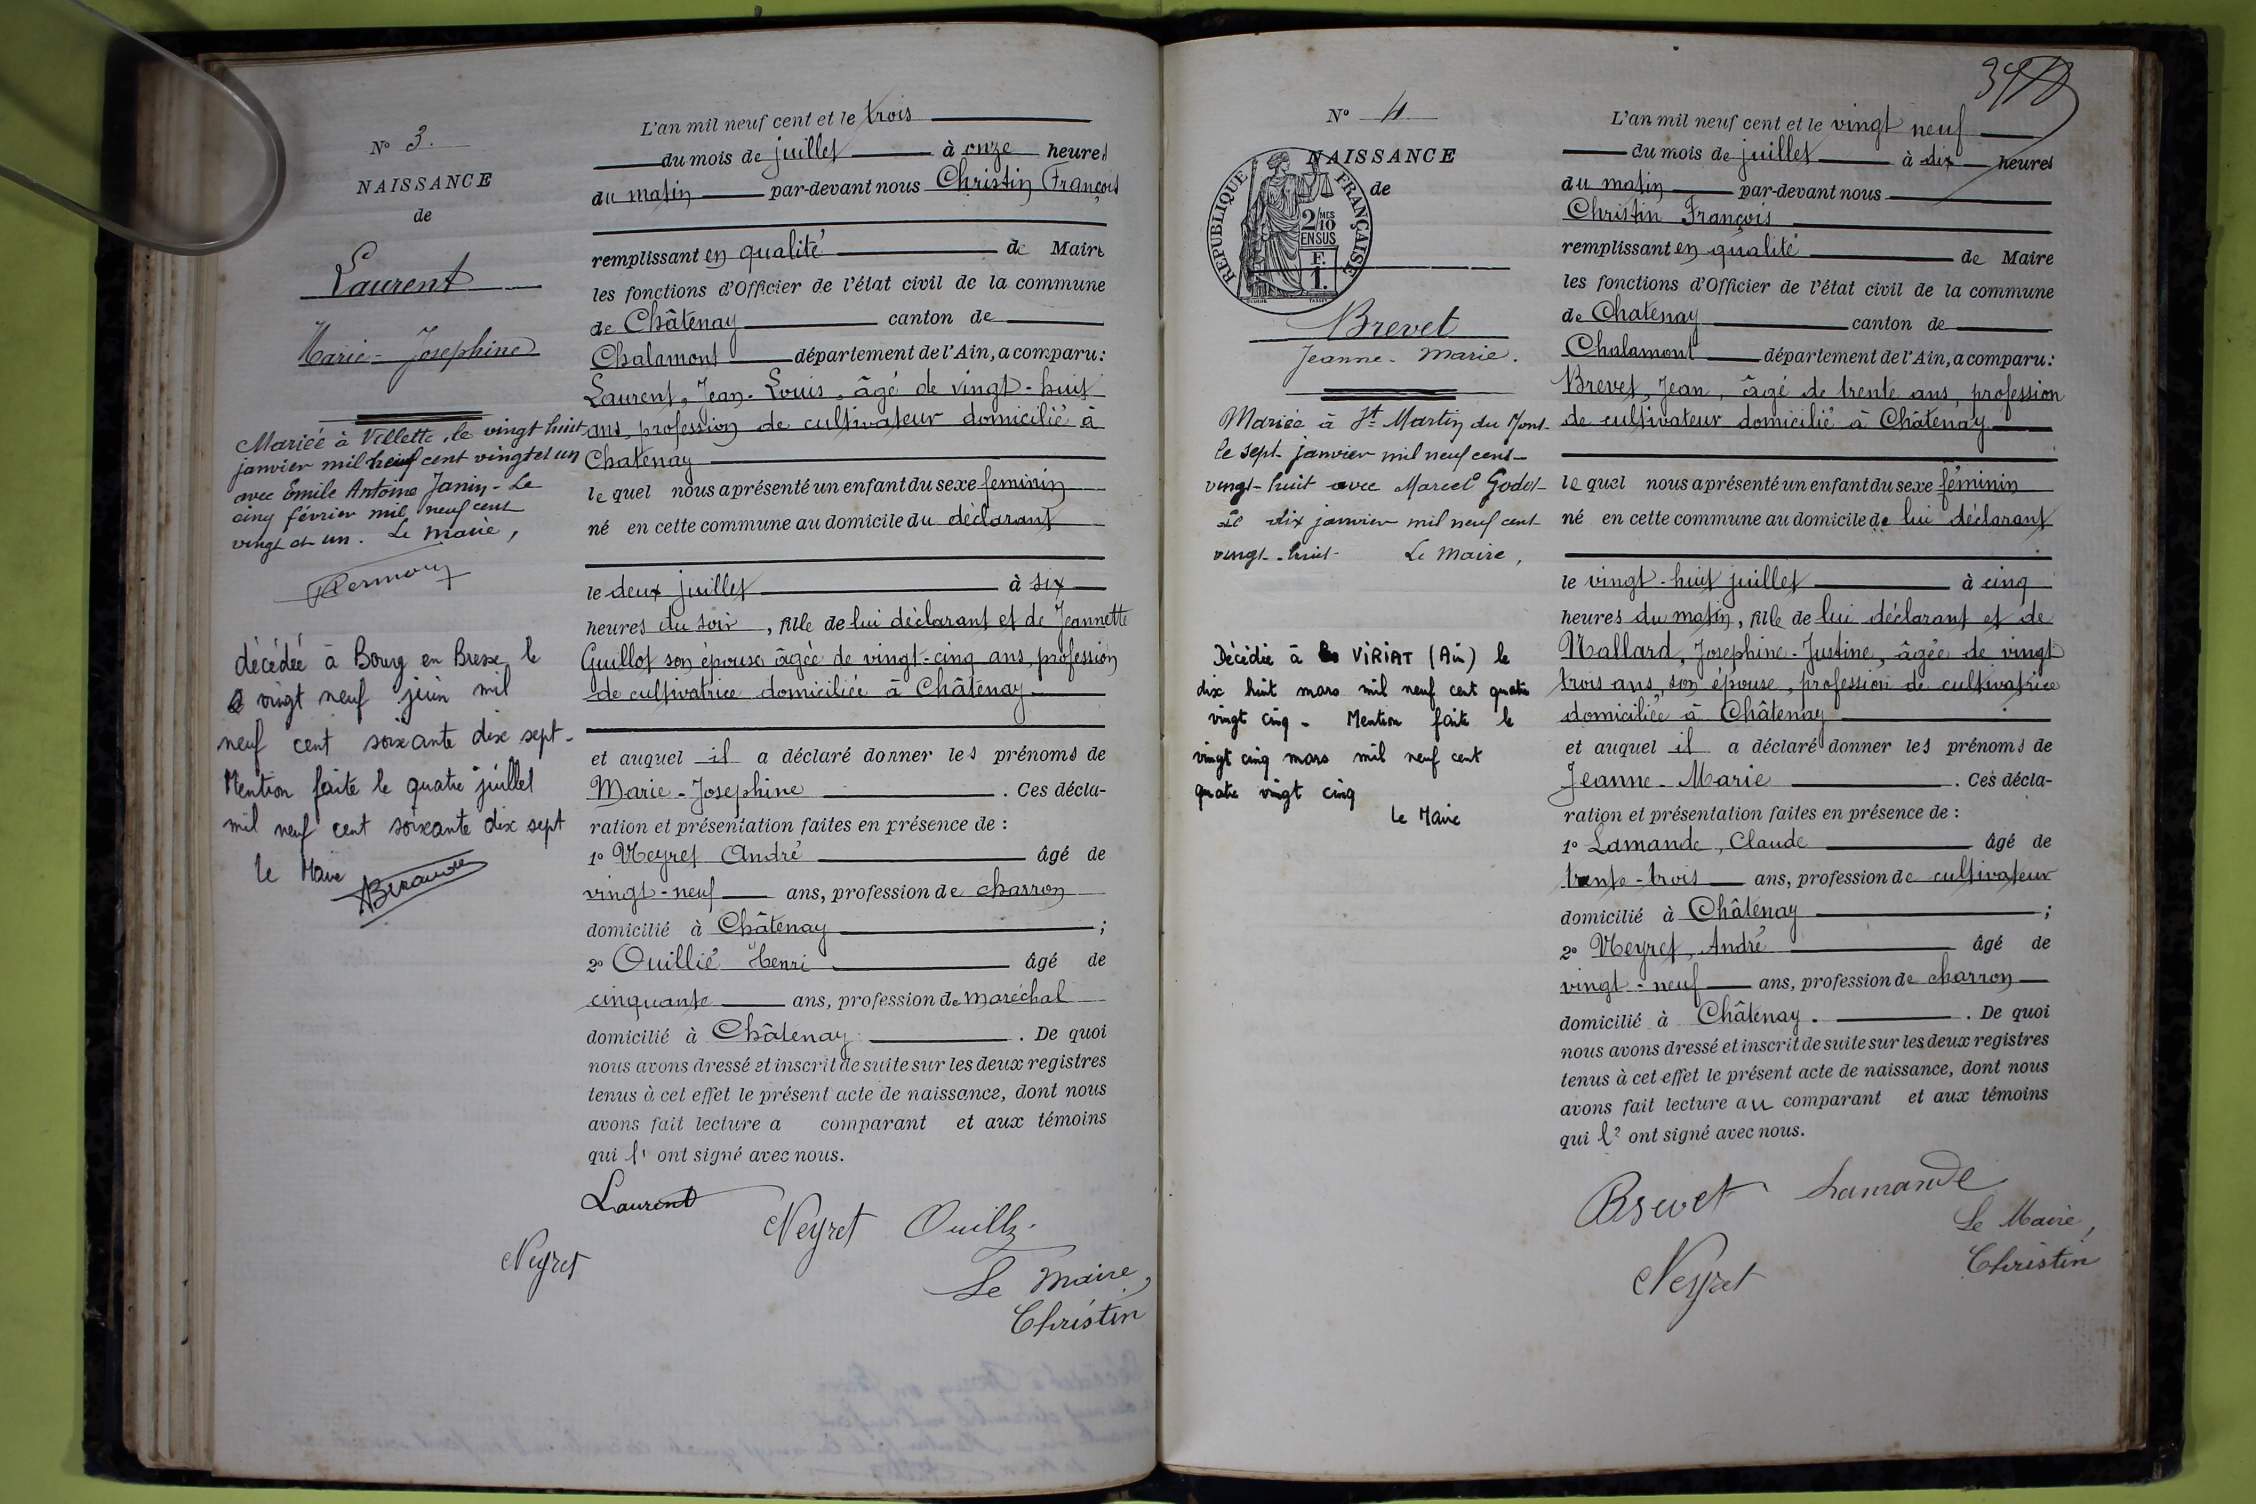 N° 3.
NAISSANCE
de
Laurent
Marie-Josephine
Mariée à Villette, le vingt huit
janvier mil neuf cent vingt et un
avec Emile Antoine Janin - Le
cinq février mil neuf cent
vingt et un. Le maire,
décédée à Bourg en Bresse, le
vingt neuf juin mil
neuf cent soixante dix sept -
Mention faite le quatre juillet
mil neuf cent soixante dix sept
le Maire
L'an mil neuf cent et le trois
du mois de juillet à onze heures
du matin par-devant nous Christin François
remplissant en qualité de Maire
les fonctions d'Officier de l'état civil de la commune
de Châtenay canton de
Chalamont département de l'Ain, a comparu:
Laurent, Jean-Louis, âgé de vingt-huit
ans, profession de cultivateur domicilié à
Chatenay
lequel nous a présenté un enfant du sexe feminin
né en cette commune au domicile du déclarant
le deux juillet à six
heures du soir, fille de lui déclarant et de Jeannette
Guillot son épouse âgée de vingt-cinq ans, profession
de cultivatrice domiciliée à Châtenay
et auquel il a déclaré donner les prénoms de
Marie-Josephine. Ces décla-
ration et présentation faites en présence de :
1° Neyret André âgé de
vingt-neuf ans, profession de charron
domicilié à Châtenay ;
2° Ouillié Henri âgé de
cinquante ans, profession de maréchal
domicilié à Châtenay. De quoi
nous avons dressé et inscrit de suite sur les deux registres
tenus à cet effet le présent acte de naissance, dont nous
avons fait lecture a comparant et aux témoins
qui l' ont signé avec nous.
Laurent
Neyret Ouillé
Neyret
Le Maire,
Christin
N° 4
NAISSANCE
de
REPUBLIQUE FRANÇAISE
2/10 MES
EN SUS
F.
1.
Brevet
Jeanne-Marie.
Mariée à St Martin du Mont
le sept janvier mil neuf cent
vingt-huit avec Marcel Godet
Le dix janvier mil neuf cent
vingt-huit Le Maire,
Décédée à VIRIAT (Ain) le
dix huit mars mil neuf cent quatre
vingt cinq - Mention faite le
vingt cinq mars mil neuf cent
quatre vingt cinq
Le Maire
L'an mil neuf cent et le vingt neuf
du mois de juillet à dix heures
du matin par-devant nous
Christin François
remplissant en qualité de Maire
les fonctions d'Officier de l'état civil de la commune
de Chatenay canton de
Chalamont département de l'Ain, a comparu:
Brevet, Jean, âgé de trente ans, profession
de cultivateur domicilié à Châtenay
lequel nous a présenté un enfant du sexe féminin
né en cette commune au domicile de lui déclarant
le vingt-huit juillet à cinq
heures du matin, fille de lui déclarant et de
Mallard, Josephine-Justine, âgée de vingt
trois ans, son épouse, profession de cultivatrice
domiciliée à Châtenay
et auquel il a déclaré donner les prénoms de
Jeanne-Marie. Ces décla-
ration et présentation faites en présence de :
1° Lamande, Claude âgé de
trente-trois ans, profession de cultivateur
domicilié à Châtenay ;
2° Neyret, André âgé de
vingt-neuf ans, profession de charron
domicilié à Châtenay. De quoi
nous avons dressé et inscrit de suite sur les deux registres
tenus à cet effet le présent acte de naissance, dont nous
avons fait lecture au comparant et aux témoins
qui l' ont signé avec nous.
Brevet Lamande
Le Maire,
Neyret
Christin